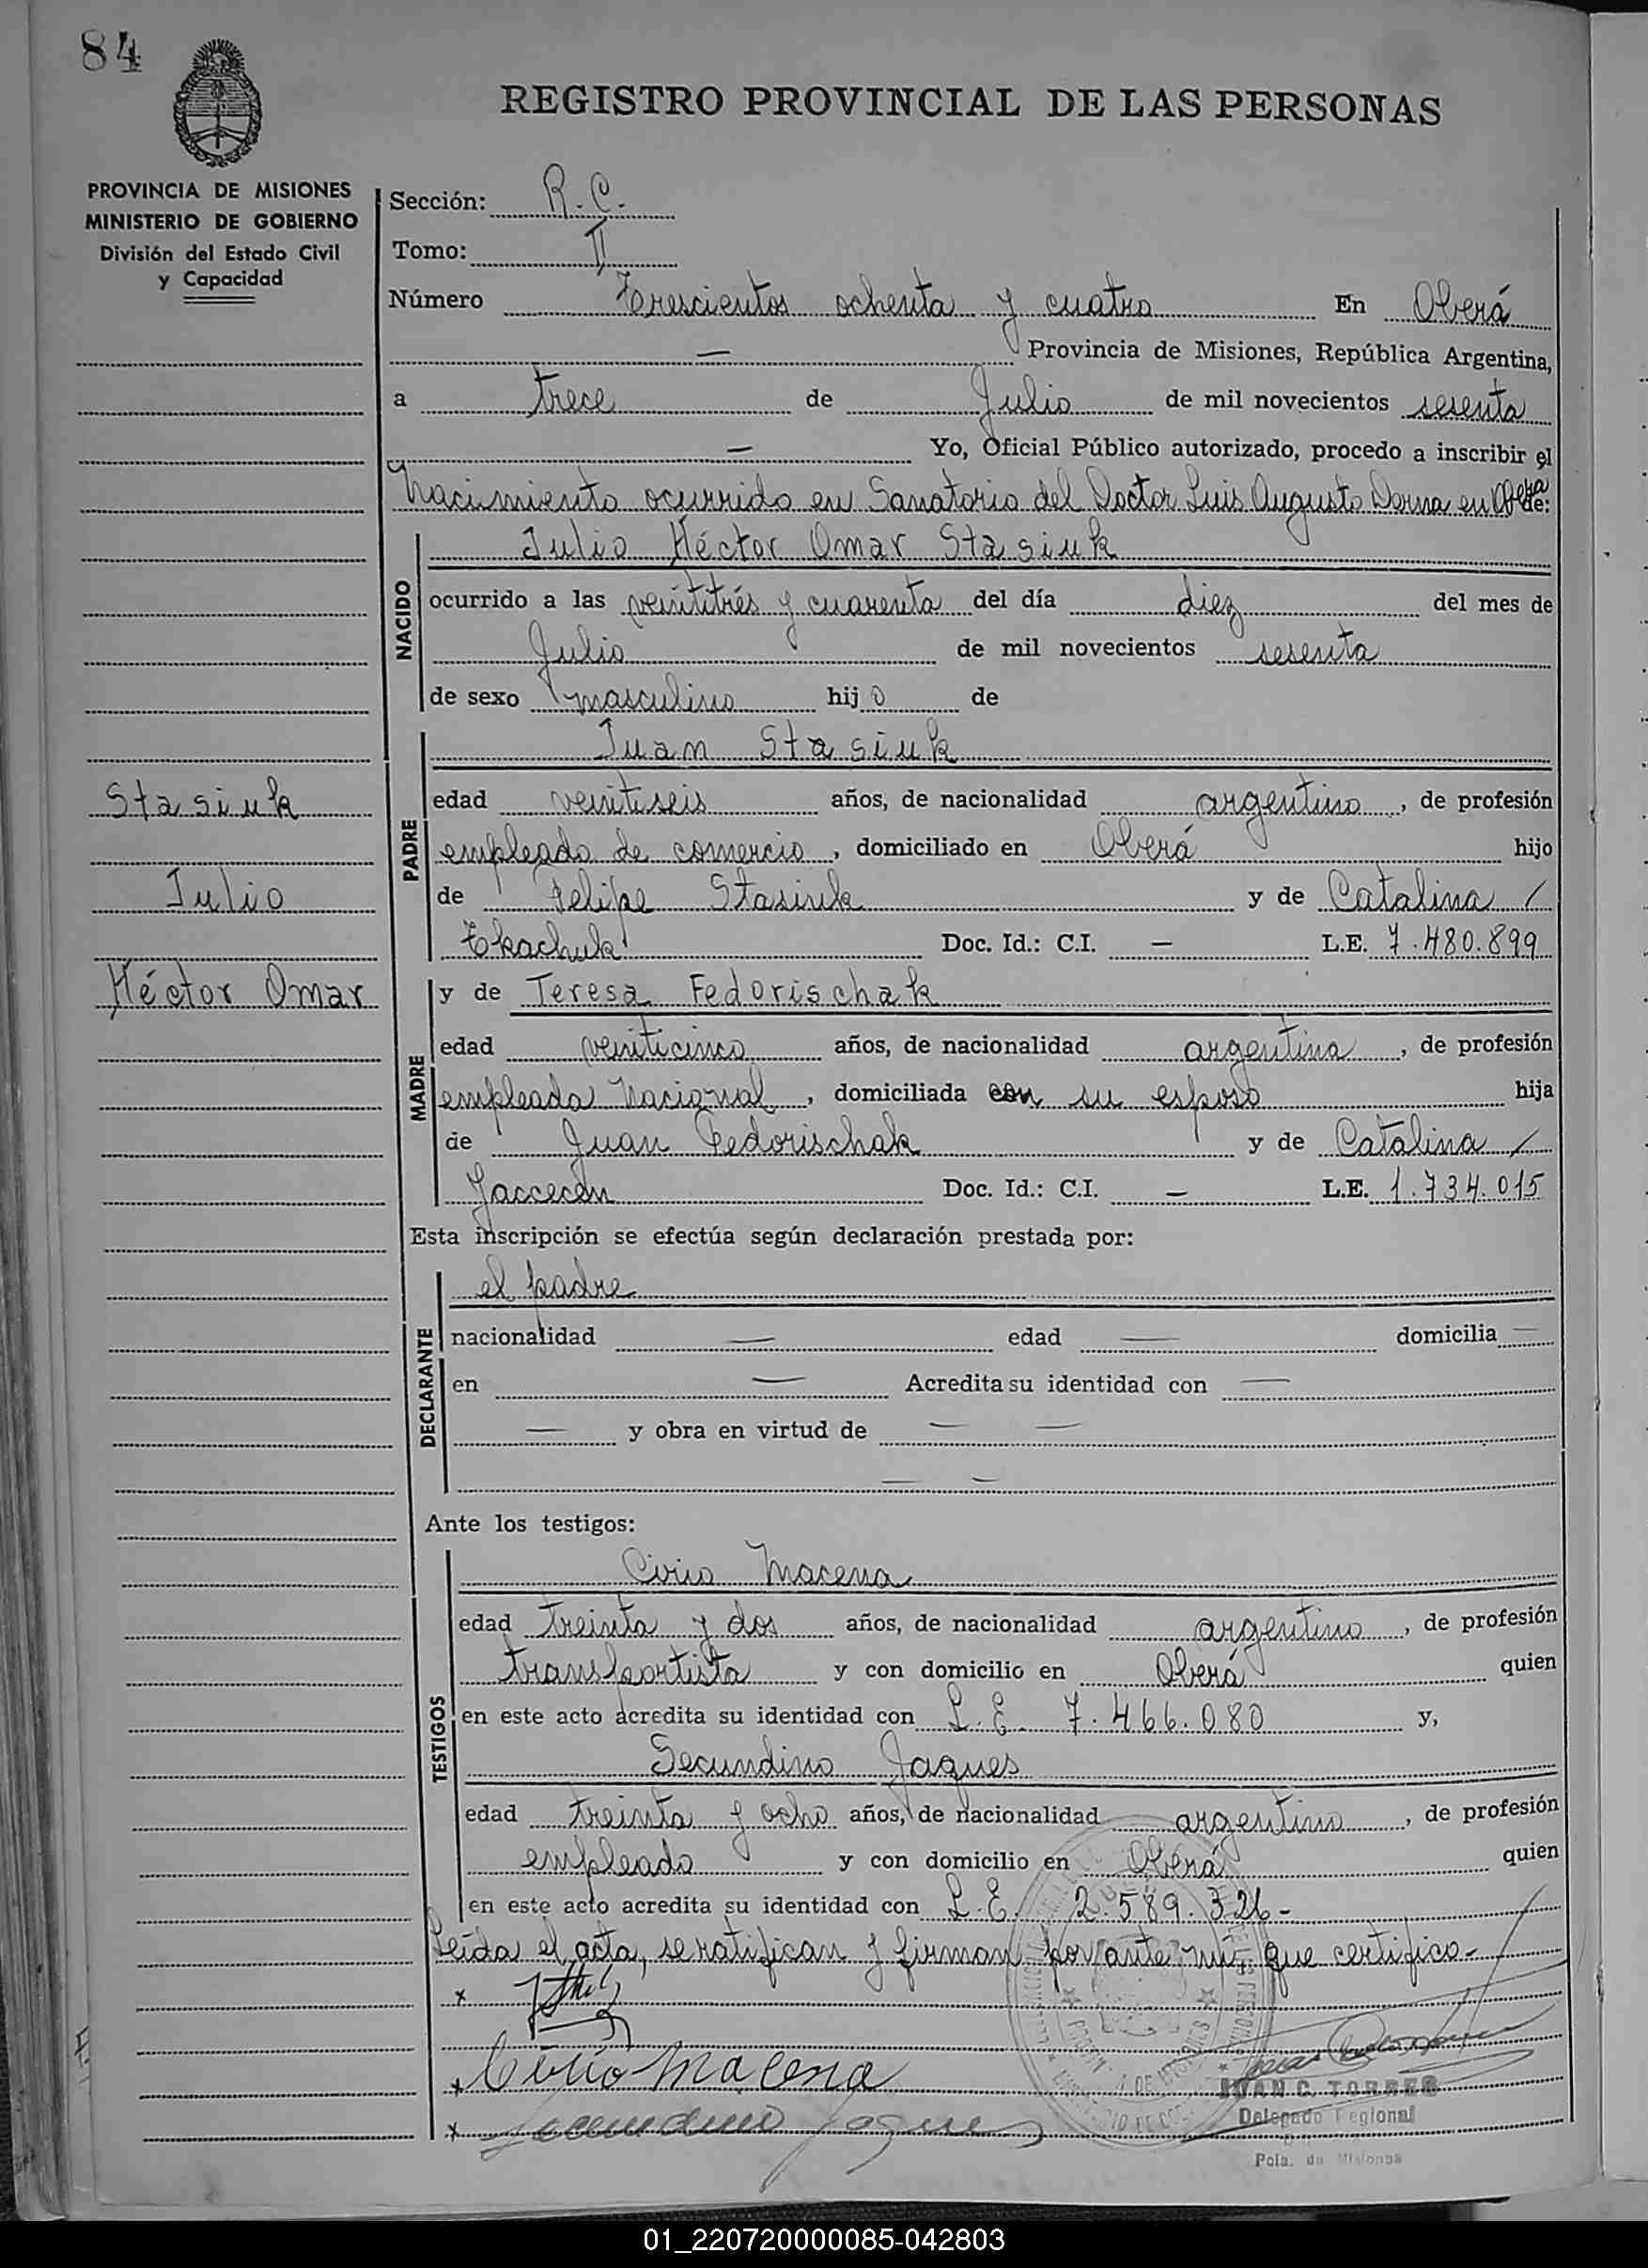 84
REGISTRO PROVINCIAL DE LAS PERSONAS
PROVINCIA DE MISIONES
MINISTERIO DE GOBIERNO
División del Estado Civil
y Capacidad
Sección: R. C.
Tomo: II
Número Trescientos ochenta y cuatro En Oberá
— Provincia de Misiones, República Argentina,
a trece de Julio de mil novecientos sesenta
— Yo, Oficial Público autorizado, procedo a inscribir el
Nacimiento ocurrido en Sanatorio del Doctor Luis Augusto Derna en Oberá de:
NACIDO
Julio Héctor Omar Stasiuk
ocurrido a las veintitrés y cuarenta del día diez del mes de
Julio de mil novecientos sesenta
de sexo masculino hij o de
PADRE
Juan Stasiuk
edad veintiseis años, de nacionalidad argentino, de profesión
empleado de comercio, domiciliado en Oberá hijo
de Felipe Stasiuk y de Catalina /
Tkachuk Doc. Id.: C.I. — L.E. 7.480.899
Stasiuk
Julio
Héctor Omar
MADRE
y de Teresa Fedorischak
edad veinticinco años, de nacionalidad argentina, de profesión
empleada Nacional, domiciliada con su esposo hija
de Juan Fedorischak y de Catalina /
Doc. Id.: C.I. — L.E. 1.734.015
Esta inscripción se efectúa según declaración prestada por:
DECLARANTE
el padre
nacionalidad — edad — domicilia —
en — Acredita su identidad con —
— y obra en virtud de — —
— —
Ante los testigos:
TESTIGOS
Cirio Macena
edad treinta y dos años, de nacionalidad argentino, de profesión
transportista y con domicilio en Oberá quien
en este acto acredita su identidad con L. E. 7.466.080 y,
Secundino Jaques
edad treinta y ocho años, de nacionalidad argentino, de profesión
empleado y con domicilio en Oberá quien
en este acto acredita su identidad con L. E. 2.589.326-
Leída el acta, se ratifican y firman por ante mi, que certifico-
x
x Cirio Macena
x Secundino Jaques
JUAN C. TORRES
Delegado Regional
Pcia. de Misiones
01_220720000085-042803